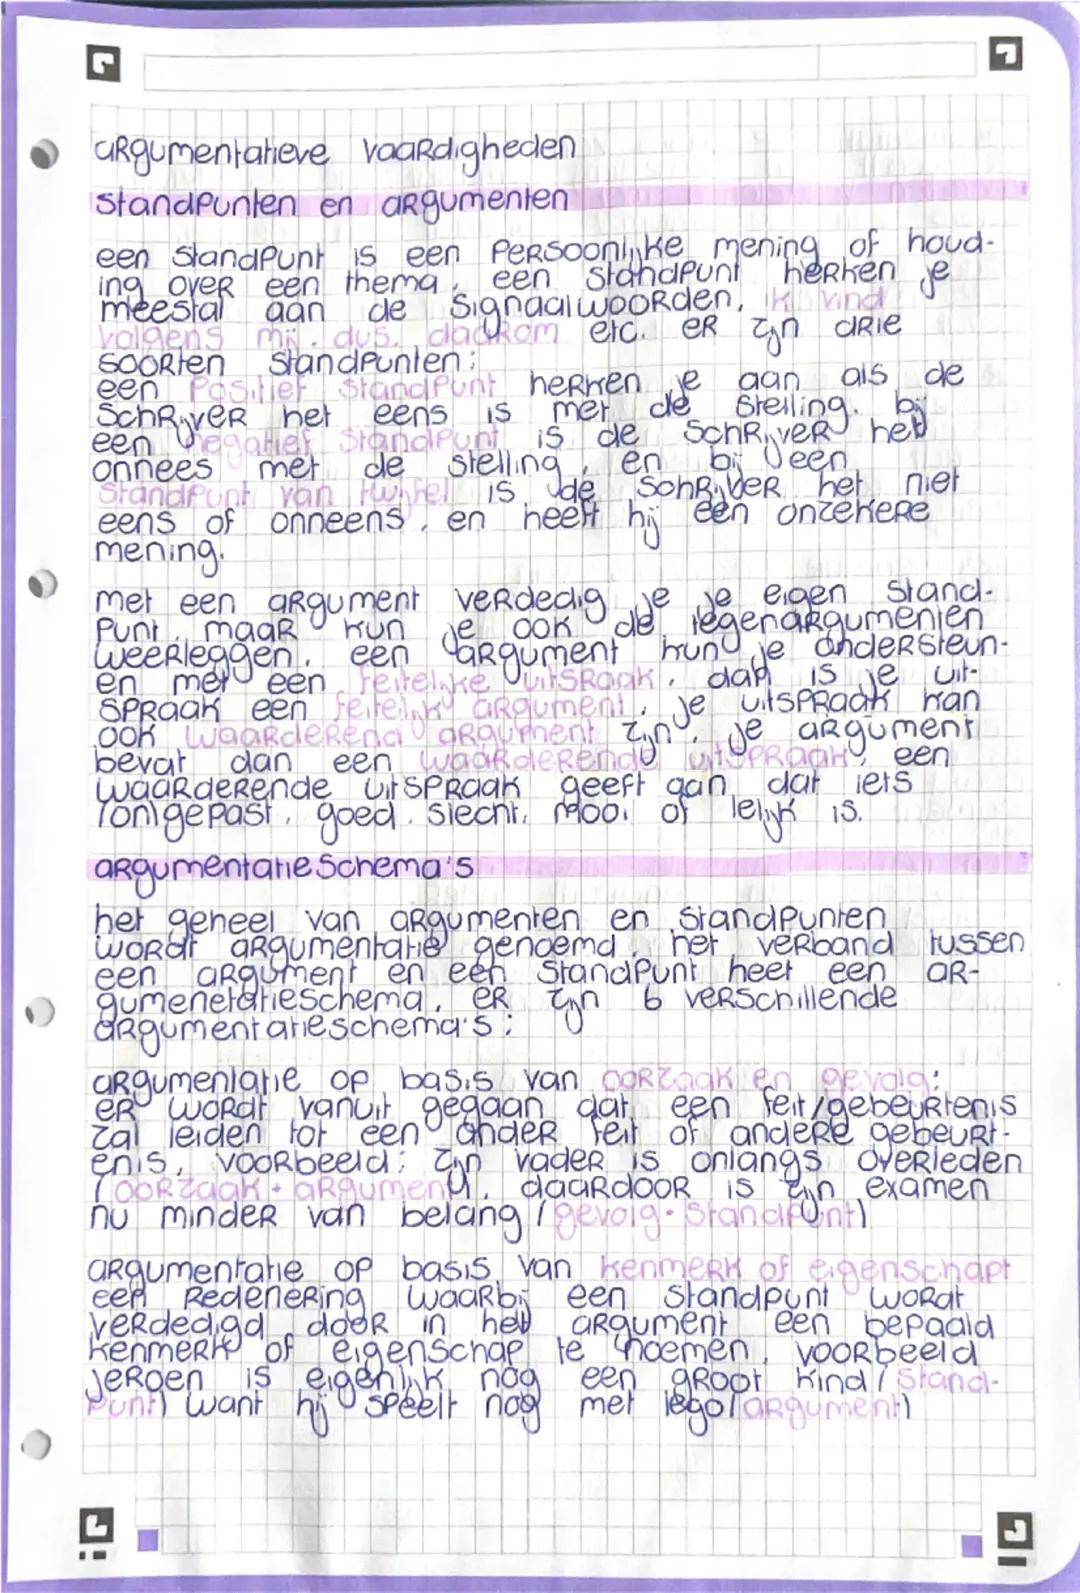 argumentatieve vaardigheden
standpunten en argumenten
een standpunt is een persoonlijke mening of houd-
ing over een thema, een standpunt herken je
meestal aan de signaalwoorden, ik vind
volgens mij, dus, daarom etc. er zijn drie
soorten standpunten:
een positief standpunt herken je aan als de
schrijver het eens is met de stelling. bij
een negatief standpunt is de schrijver het
onnees met de stelling, en bij een
standpunt van twijfel is de schrijver het niet
eens of onneens, en heeft hij een onzekere
mening.
met een argument verdedig je je eigen stand-
punt, maar kun je ook de tegenargumenten
weerleggen. een argument kun je ondersteun-
en met een feitelijke uitsraak, dan is je uit-
spraak een feitelijk argument, je uitspraak kan
ook waarderend argument zijn, je argument
bevat dan een waarderende uitspraak, een
waarderende uitspraak geeft aan dat iets
(on)gepast, goed, slecht, mooi of lelijk is.
argumentatieschema's
het geheel van argumenten en standpunten
wordt argumentatie genoemd, het verband tussen
een argument en een standpunt heet een ar-
gumenetatieschema, er zijn 6 verschillende
argumentatieschema's:
argumentatie op basis van oorzaak en gevolg:
er wordt vanuit gegaan dat een feit/gebeurtenis
zal leiden tot een ander feit of andere gebeurt-
enis, voorbeeld: zijn vader is onlangs overleden
(oorzaak + argument), daardoor is zijn examen
nu minder van belang (gevolg - standpunt)
argumentatie op basis van kenmerk of eigenschapt
een redenering waarbij een standpunt wordt
verdedigd door in het argument een bepaald
kenmerk of eigenschap te noemen, voorbeeld
jeroen is eigenlijk nog een groot kind (stand-
punt) want hij speelt nog met lego (argument)